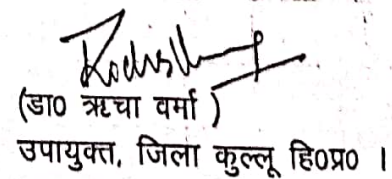 (डा० ऋचा वर्मा)
उपायुक्त, जिला कुल्लू हि०प्र० ।